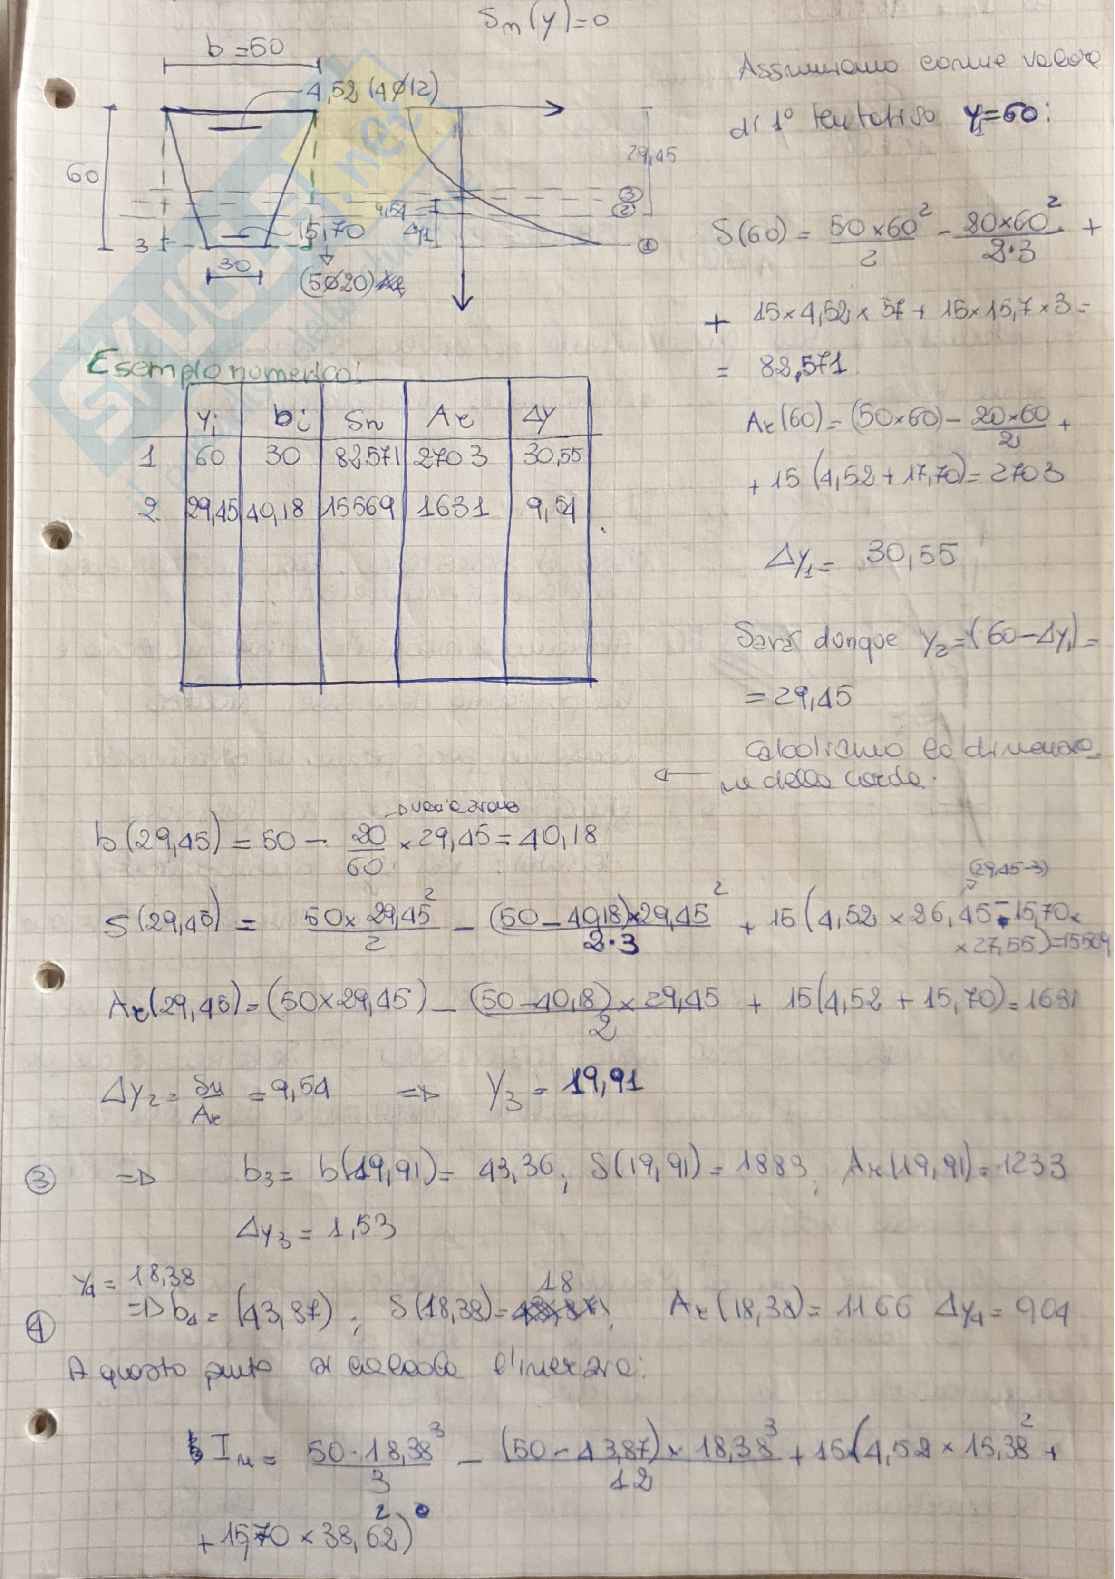 Sn(y)=0
b=50
4,52 (4Ø12)
60
29,45
3
2
1
9,54
Δy1
3
15,70
30
(5Ø20)
Assumiamo come valore
di 1° tentativo y1=60:
S(60) = 50×60²/2 - 20×60²/2·3 +
+ 15×4,52×57 + 15×15,7×3 =
= 82,571
Ar(60) = (50×60) - 20×60/2 +
+ 15 (4,52+17,70) = 2703
Δy1 = 30,55
Sarà dunque y2=(60-Δy1) =
= 29,45
Calcoliamo la dimensio-
ne della corda.
Esempio numerico:
yi bi Sn Ar Δy
1 60 30 82571 2703 30,55
2 29,45 40,18 15569 1631 9,54
b(29,45) = 50 - 20/60 × 29,45 = 40,18
(29,45-3)
S(29,45) = 50×29,45²/2 - (50-40,18)×29,45²/2·3 + 15(4,52×26,45-15,70×
×27,55)=15569
Ar(29,45)=(50×29,45) - (50-40,18)×29,45/2 + 15(4,52+15,70)=1631
Δy2 = Sn/Ar = 9,54 => y3 = 19,91
3 => b3 = b(19,91) = 43,36; S(19,91) = 1883; Ar(19,91) = 1233
Δy3 = 1,53
y4 = 18,38
4 => b4 = (43,87); S(18,38) = 18; Ar(18,38) = 1166 Δy4 = 904
A questo punto si calcola l'inerzia:
In = 50·18,38³/3 - (50-43,87)×18,38³/12 + 15(4,52×15,38² +
+ 15,70×38,62²)